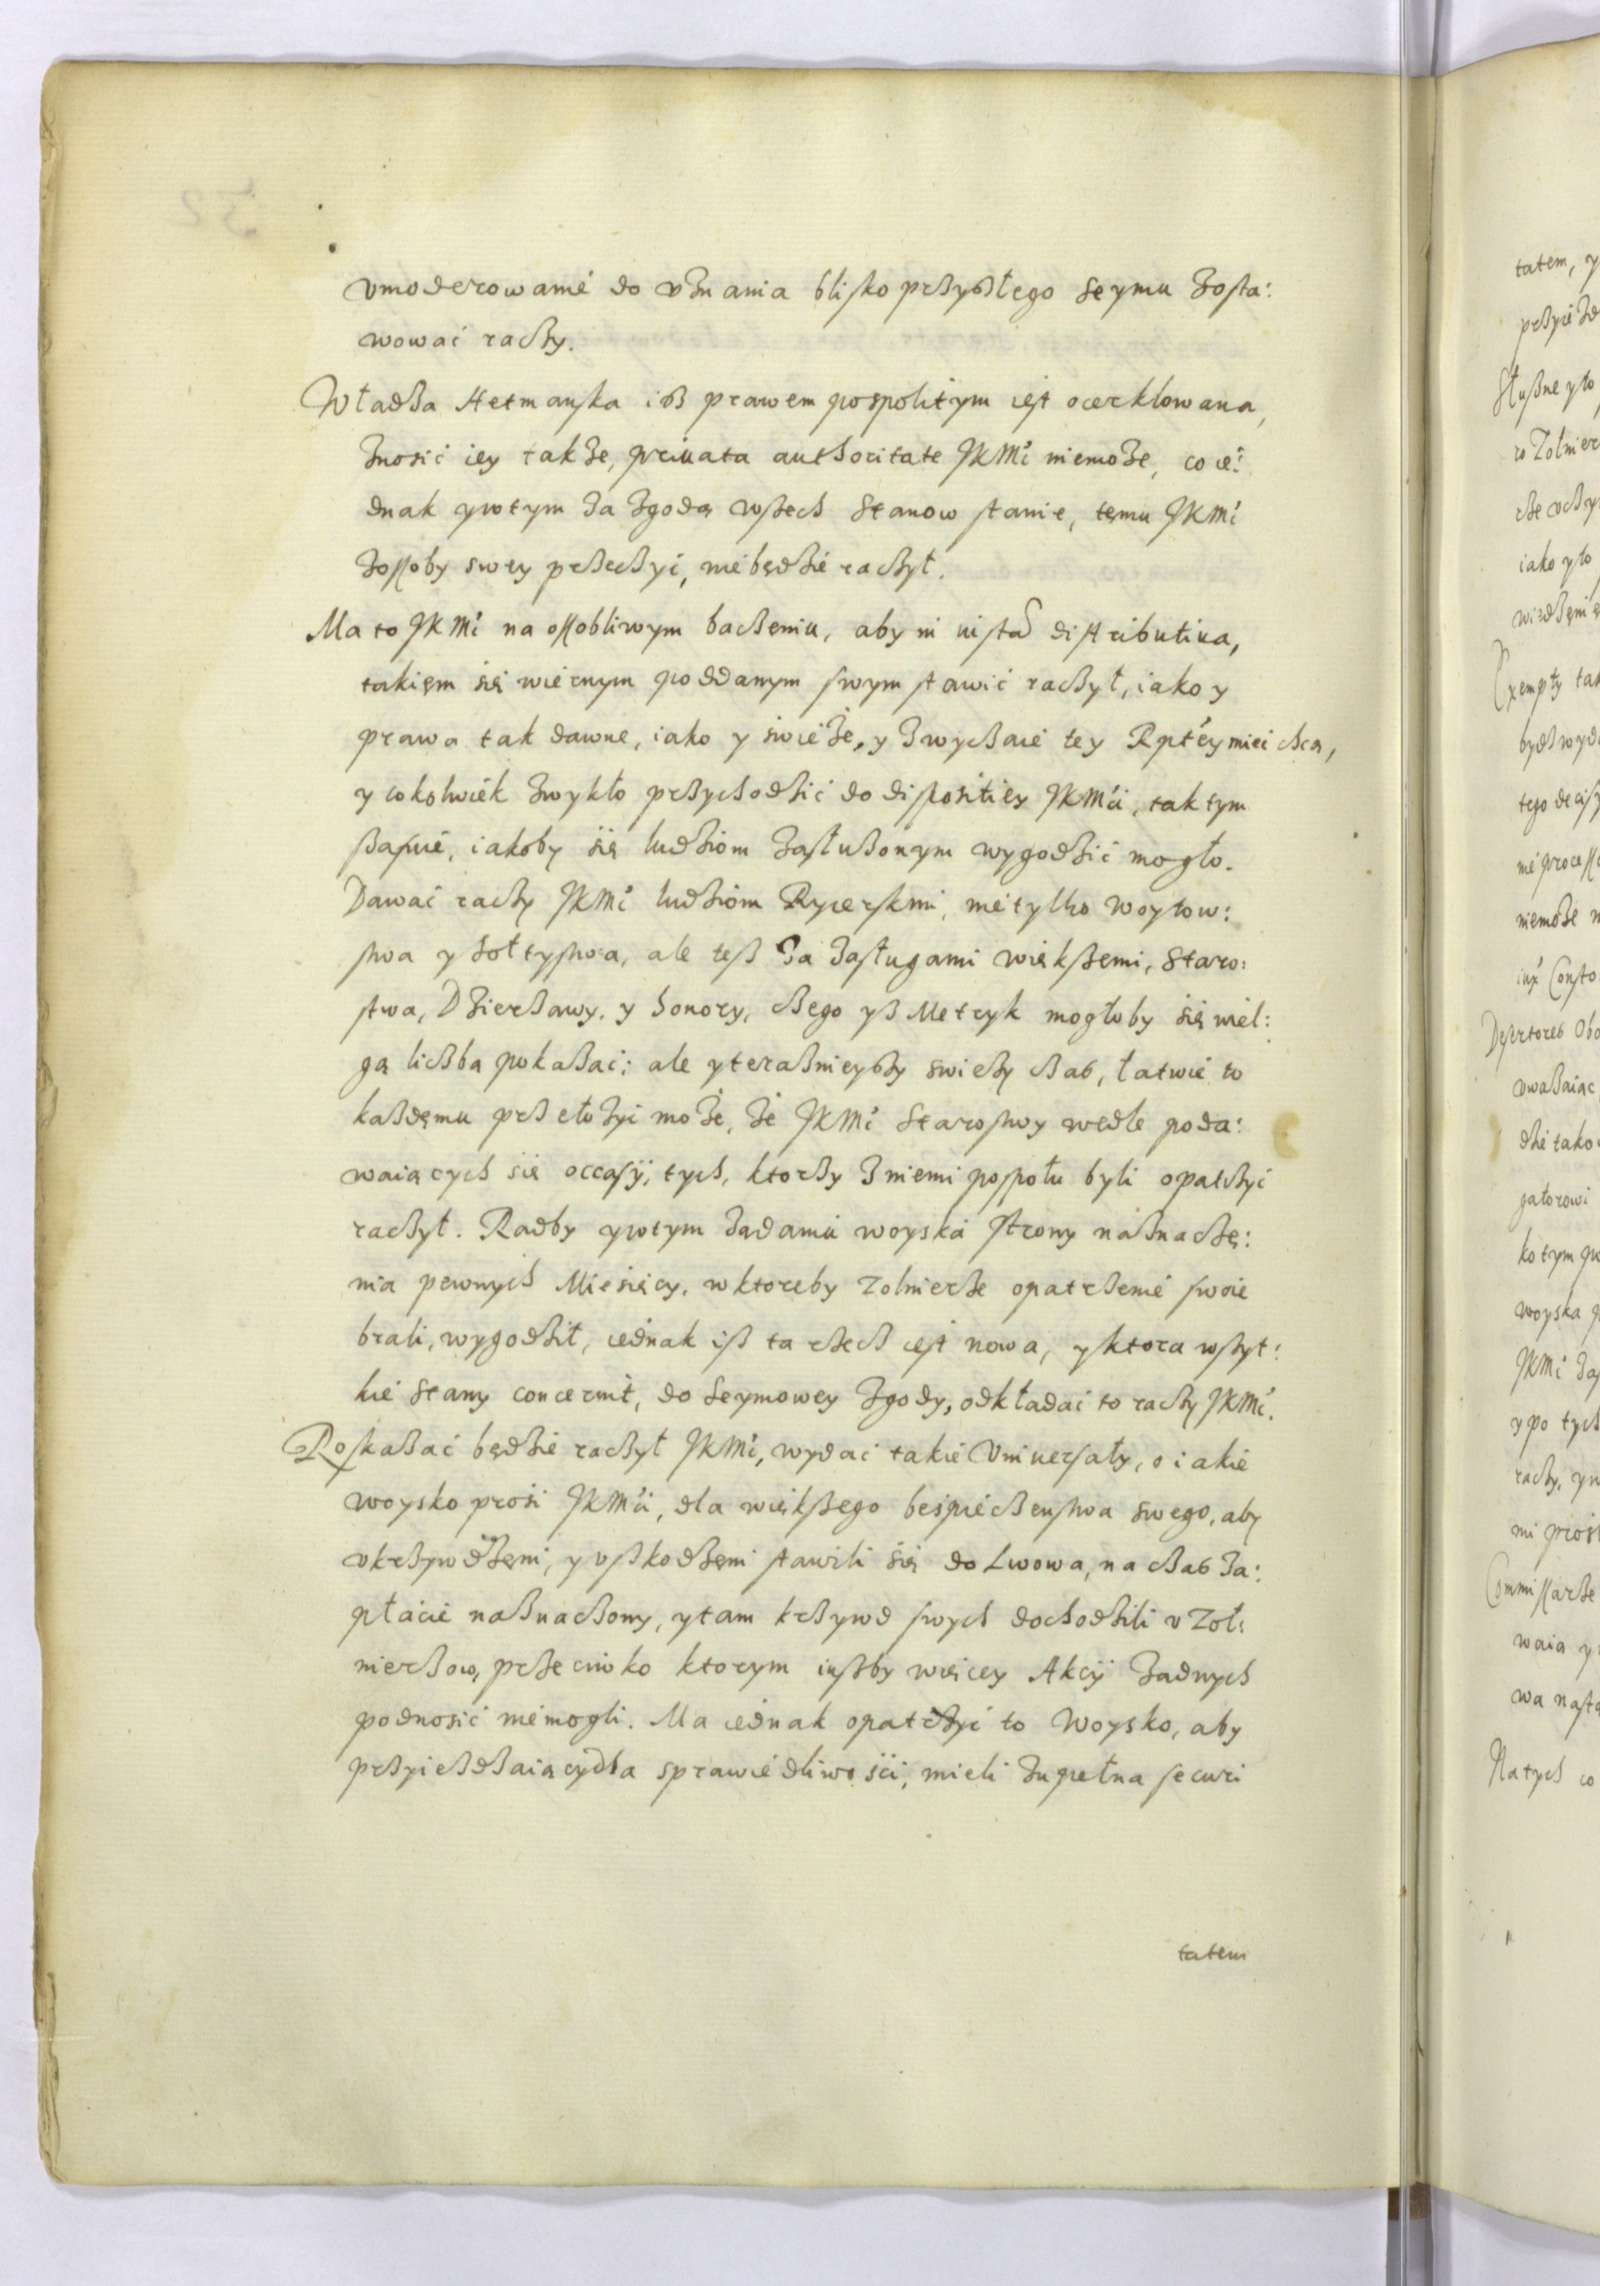 vmoderowanié do vznania blisko przyszłego Seymu zosta:
wować raczy.
Władza Hetmanska isz prawem pospolitym iest ocerklowana,
znosić iey także, priuata authoritate JKMć niemoże, co ie:
dnak ywtym za zgodą wszech Stanow stanie, temu JKMć
zossoby swey przeczyć, niebędzie raczył.
Ma to JKMć na ossobliwym baczeniu, aby in iusta distributiua,
takięm się wiernym poddanym swym stawić raczył, iako y
prawa tak dawne, iako y świeże, y zwyczaie tey Rptéy mieć chcą,
y cokolwiék zwykło przychodzić do dispositiey JKMći, tak tym
szafuié, iakoby się ludziom zasłużonym wygodzić mogło.
Dawać raczy JKMć ludziom Rycerskim, nietylko woytow:
stwa y sołtystwa, ale tesz za zasługami większemi, Staro:
stwa, Dzierżawy, y honory, czego ysz Metryk mogłoby się wiel:
gą liczbą pokazać: ale yteraznieyszy swieży czas, łatwie to
każdęmu przełożyć może, że JKMć Starostwy wedle poda:
waiących się occasÿ, tych, ktorzy z niemi pospołu byli opatrzyć
raczył. Radby ywtym żądaniu woyska strony náznaczę:
nia pewnych Miesięcy, w ktoreby zolnierze opatrzenié swoie
brali, wygodził, iednak isz ta rzecz iest nowa, y ktora wszyt:
kié Stany concernit, do Seymowey zgody, odkładać to raczy JKMć.
Roskazać będzie raczył JKMć, wydać takié Vniuersały, o iakié
woysko prosi JKMći, dla większego bespieczenstwa swego, aby
vkrzywdzęni, y vszkodzęni stawili się do Lwowa, na czas za:
płácié naznaczony, ytam krzywd swych dochodzili v Zoł:
nierzow, przeciwko ktorym iuszby więcey Akcÿ żadnych
podnosić niémogli. Ma iednak opatrzyć to Woysko, aby
przyieżdzaiący dla sprawiedliwości, mieli zupełna securi
tatem